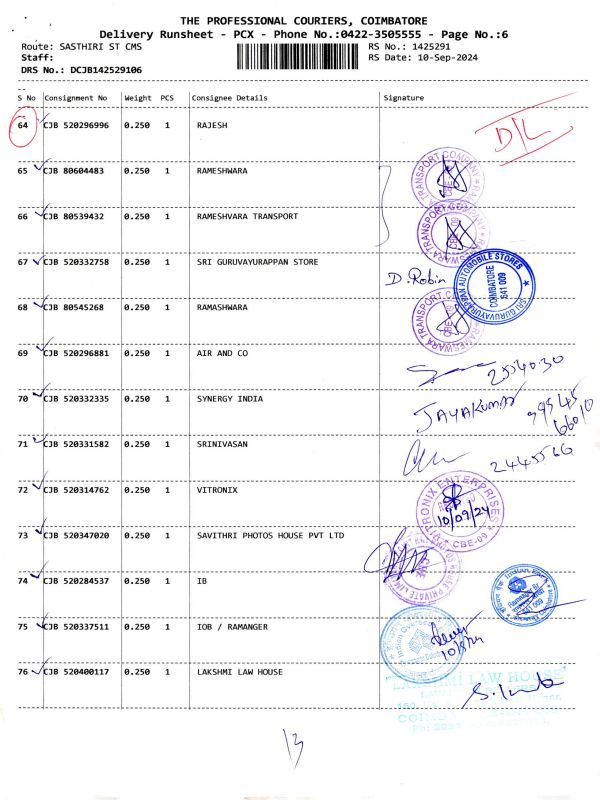 THE PROFESSIONAL COURIERS, COIMBATORE
Delivery Runsheet - PCX - Phone No.:0422-3505555 - Page No.:6
Route: SASTHIRI ST CMS RS No.: 1425291
Staff: RS Date: 10-Sep-2024
DRS No.: DCJB142529106
S No Consignment No Weight PCS Consignee Details Signature
64 CJB 520296996 0.250 1 RAJESH D/L
65 CJB 80604483 0.250 1 RAMESHWARA
66 CJB 80539432 0.250 1 RAMESHVARA TRANSPORT
RAMESWARA TRANSPORT COMPANY CBE-09
67 CJB 520332758 0.250 1 SRI GURUVAYURAPPAN STORE D. Robin
SRI GURUVAYURAPPAN AUTOMOBILE STORES COIMBATORE 641 009
68 CJB 80545268 0.250 1 RAMASHWARA
RAMESWARA TRANSPORT COMPANY
69 CJB 520296881 0.250 1 AIR AND CO 2554030
70 CJB 520332335 0.250 1 SYNERGY INDIA JAYAKUMAR 99545
66010
71 CJB 520331582 0.250 1 SRINIVASAN 2445566
72 CJB 520314762 0.250 1 VITRONIX
VITRONIX ENTERPRISES CBE-09
10/09/24
73 CJB 520347020 0.250 1 SAVITHRI PHOTOS HOUSE PVT LTD
74 CJB 520284537 0.250 1 IB
Indian Bank
641 009
75 CJB 520337511 0.250 1 IOB / RAMANGER
Indian Overseas
76 CJB 520400117 0.250 1 LAKSHMI LAW HOUSE
LAKSHMI LAW HOUSE
13